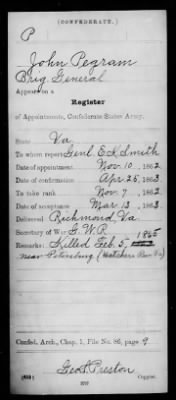 (CONFEDERATE.)
P
John Pegram
Brig. General
Appears on a
Register
of Appointments, Confederate States Army.
State Va
To whom report Genl. E K Smith
Date of appointment Nov. 10, 1862
Date of confirmation Apr. 25, 1863
To take rank Nov. 7, 1862
Date of acceptance Mar. 13, 1863
Delivered Richmond, Va
Secretary of War G. W. R.
Remarks: Killed Feb 5, 1865
near Petersburg (Hatchers Run Va)
Confed. Arch., Chap. 1, File No. 86, page 9
Geo. S. Preston
Copyist.